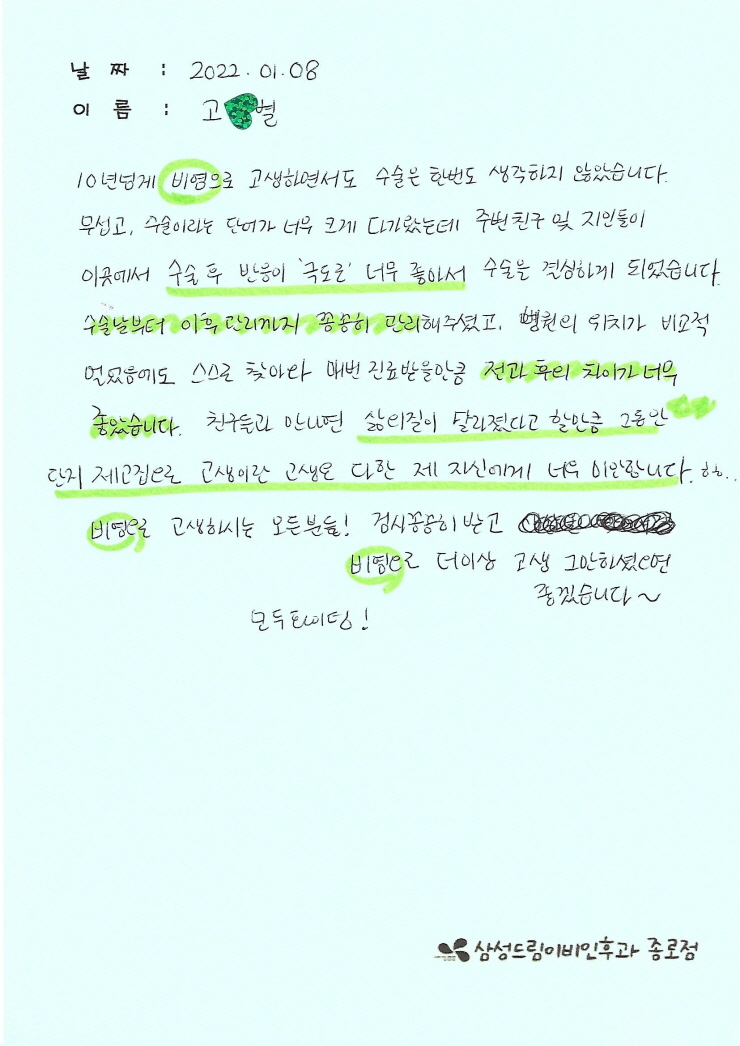 날 짜 : 2022.01.08
이 름 : 고 별
10년넘게 비염으로 고생하면서도 수술은 한번도 생각하지 않았습니다.
무섭고, 수술이라는 단어가 너무 크게 다가왔는데 주변친구 및 지인들이
이곳에서 수술 후 반응이 '극도로' 너무 좋아서 수술을 결심하게 되었습니다
수술날부터 이후 관리까지 꼼꼼히 관리해주셨고, 병원의 위치가 비교적
멀었음에도 스스로 찾아와 매번 진료받을만큼 전과 후의 차이가 너무
좋았습니다. 친구들과 만나면 삶의질이 달라졌다고 할만큼 그동안
단지 제고집으로 고생이란 고생은 다한 제 자신에게 너무 미안합니다. ㅎㅎ..
비염으로 고생하시는 모든분들! 검사꼼꼼히 받고
비염으로 더이상 고생 그만하셨으면
좋겠습니다~
모두화이팅!
삼성드림이비인후과 종로점